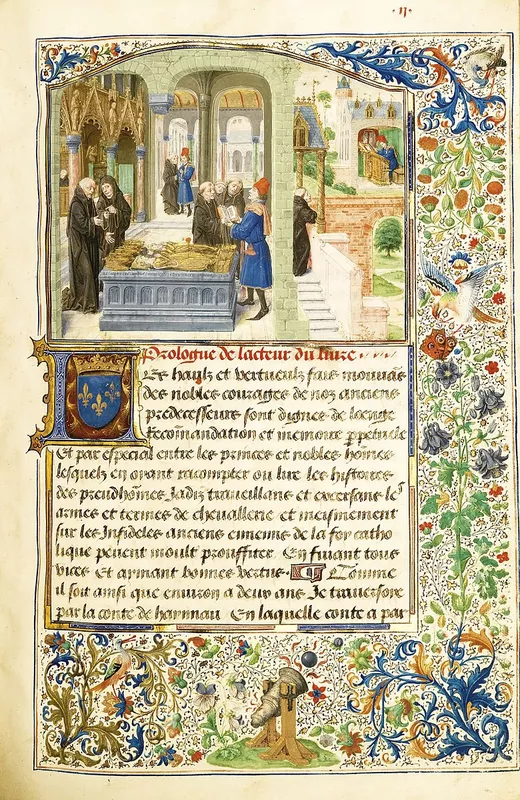 ·ij·
Prologue de lacteur du livre
Les haulx et vertueulx fais mouvans
des nobles courages de noz anciens
predecesseurs sont dignes de loenge
Recommandation et memoire perpetuele
Et par especial entre les princes et nobles homes
lesquelz en oyant racompter ou lire les histoires
des preudhomes Jadiz traueillans et excersans les
armes et termes de cheuallerie et meismement
sur les Infideles anciens ennemis de la foy catho
lique peuent moult prouffiter. En fuiant tous
vices Et aymant bonnes vertus. Comme
il soit ainsi que enuiron a deux ans Je traversoye
par la conte de haynnau En laquelle conte a par